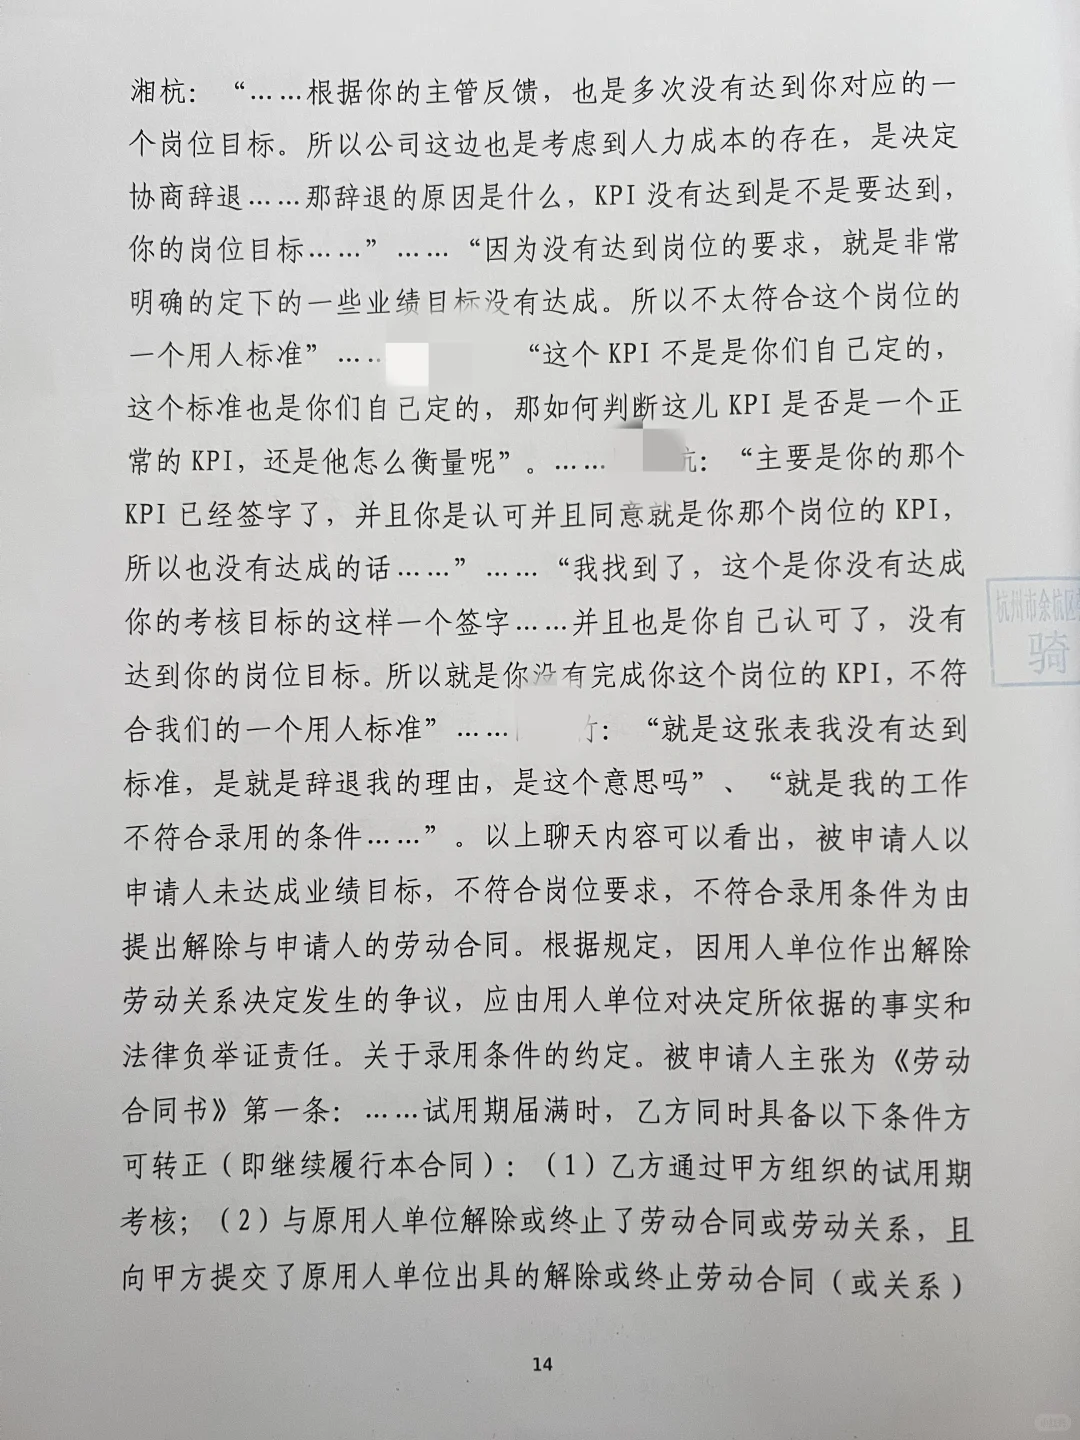 湘杭：“……根据你的主管反馈，也是多次没有达到你对应的一
个岗位目标。所以公司这边也是考虑到人力成本的存在，是决定
协商辞退……那辞退的原因是什么，KPI 没有达到是不是要达到，
你的岗位目标……”……“因为没有达到岗位的要求，就是非常
明确的定下的一些业绩目标没有达成。所以不太符合这个岗位的
一个用人标准”…… “这个 KPI 不是是你们自己定的，
这个标准也是你们自己定的，那如何判断这儿 KPI 是否是一个正
常的 KPI，还是他怎么衡量呢”。…… 杭：“主要是你的那个
KPI 已经签字了，并且你是认可并且同意就是你那个岗位的 KPI，
所以也没有达成的话……”……“我找到了，这个是你没有达成
你的考核目标的这样一个签字……并且也是你自己认可了，没有
达到你的岗位目标。所以就是你没有完成你这个岗位的 KPI，不符
合我们的一个用人标准”…… ：“就是这张表我没有达到
标准，是就是辞退我的理由，是这个意思吗”、“就是我的工作
不符合录用的条件……”。以上聊天内容可以看出，被申请人以
申请人未达成业绩目标，不符合岗位要求，不符合录用条件为由
提出解除与申请人的劳动合同。根据规定，因用人单位作出解除
劳动关系决定发生的争议，应由用人单位对决定所依据的事实和
法律负举证责任。关于录用条件的约定。被申请人主张为《劳动
合同书》第一条：……试用期届满时，乙方同时具备以下条件方
可转正（即继续履行本合同）：（1）乙方通过甲方组织的试用期
考核；（2）与原用人单位解除或终止了劳动合同或劳动关系，且
向甲方提交了原用人单位出具的解除或终止劳动合同（或关系）
14
杭州市余杭区
骑